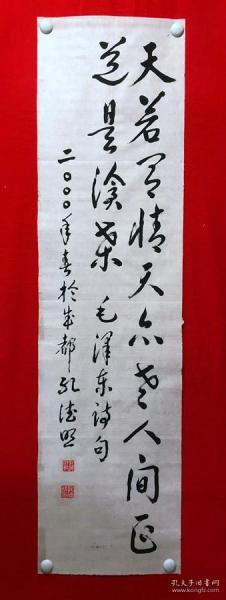 天若有情天亦老人间正
道是沧桑 毛泽东诗句
二〇〇〇年春於成都孔德明
孔夫子旧书网
www.kongfz.com